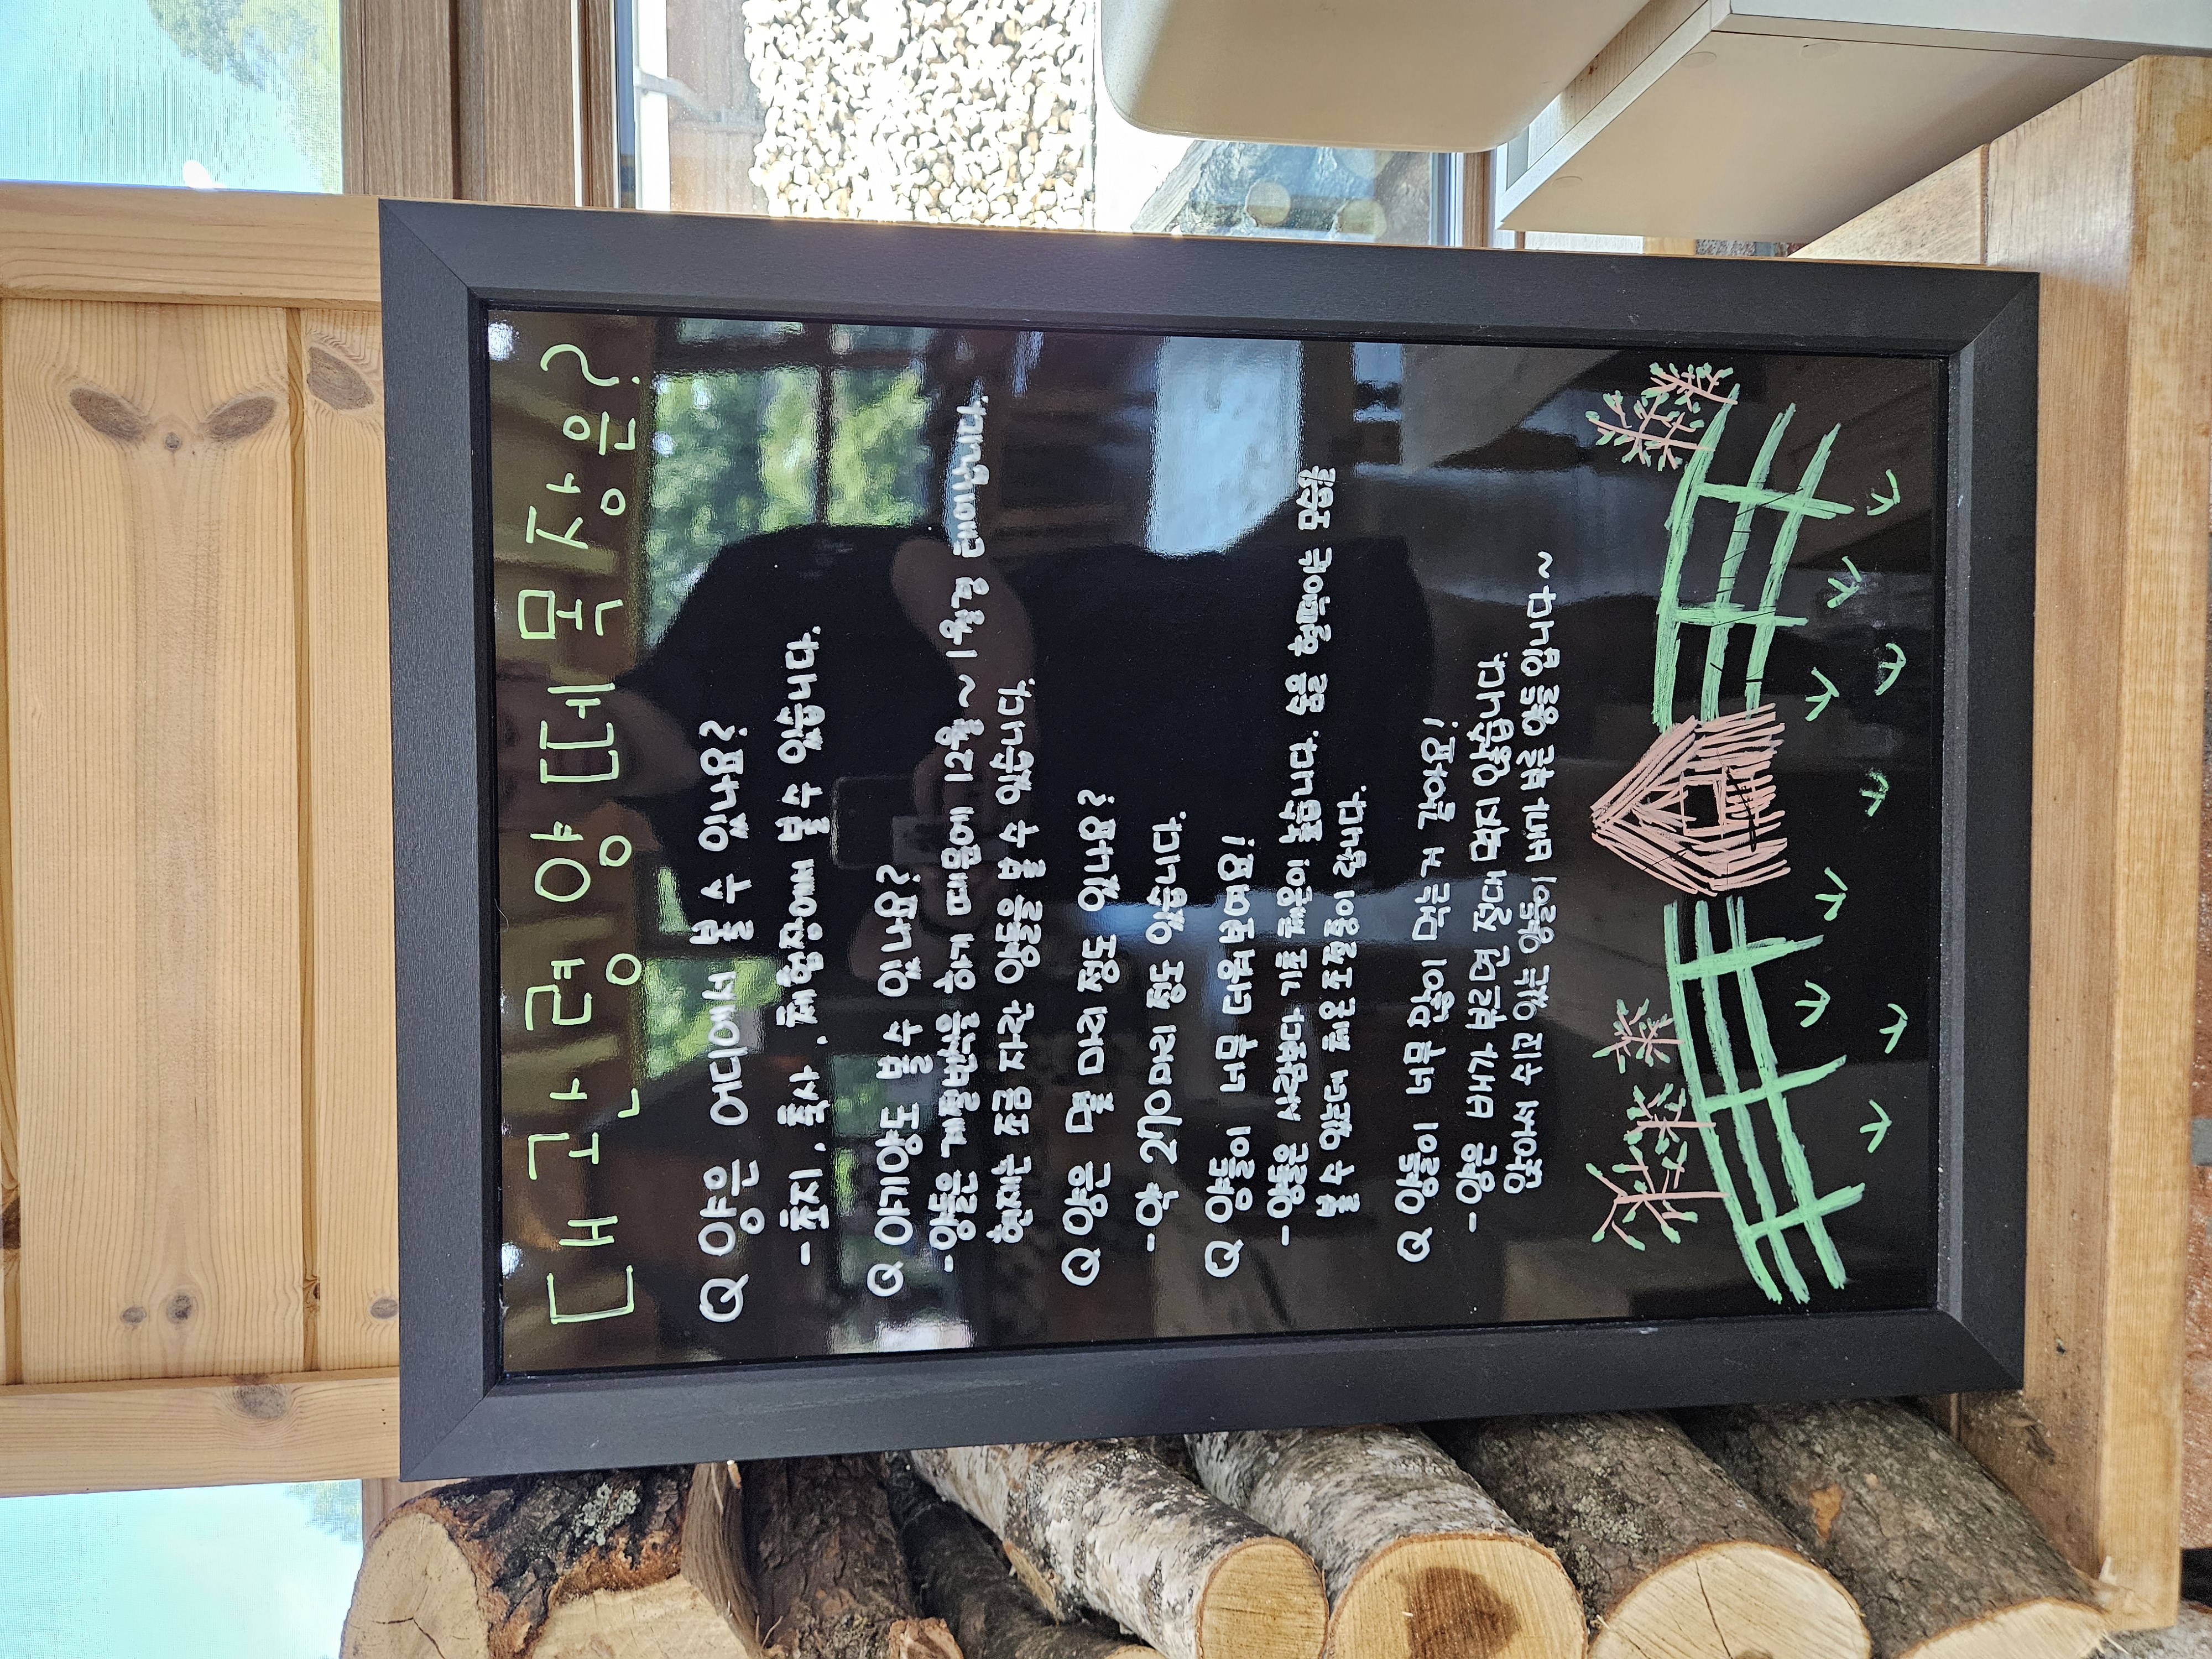 대관령 양떼목장은?
Q 양은 어디에서 볼 수 있나요?
- 초지, 축사, 체험장에서 볼 수 있습니다.
Q 아기양도 볼 수 있나요?
- 양들은 계절번식을 하기 때문에 12월 ~ 1월경 태어납니다.
현재는 조금 자란 양들을 볼 수 있습니다.
Q 양은 몇 마리 정도 있나요?
- 약 270마리 정도 있습니다.
Q 양들이 너무 더워보여요!
- 양들은 사람보다 기초체온이 높습니다. 숨을 헐떡이는 모습을
볼 수 있는데 체온조절중이랍니다.
Q 양들이 너무 많이 먹는 거 같아요!
- 양은 배가 부르면 절대 먹지 않습니다
앉아서 쉬고 있는 양들이 배가 부른 양들 입니다~